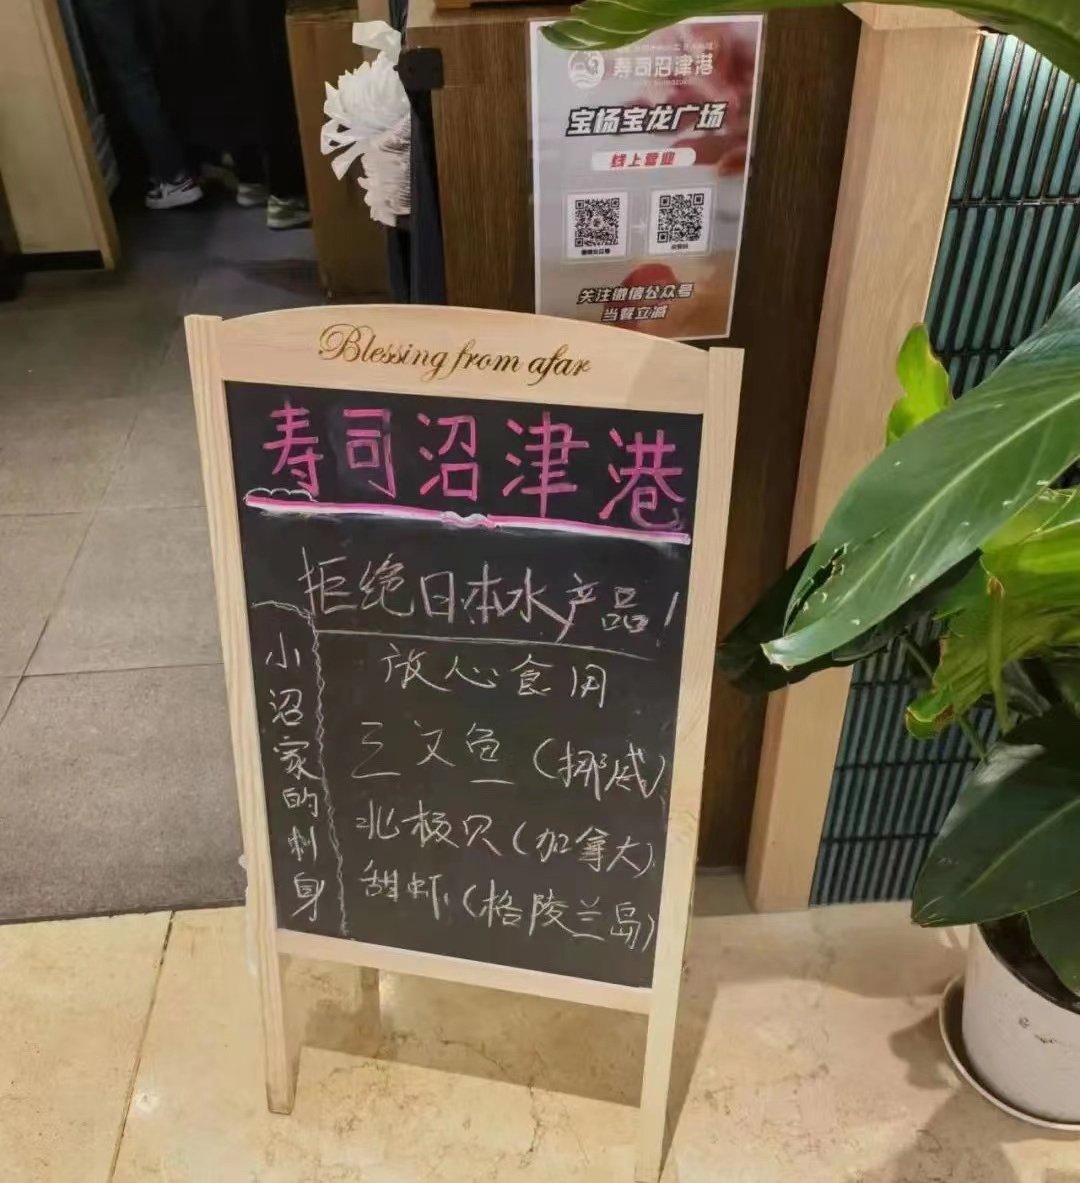 寿司沼津港
宝杨宝龙广场
线上营业
关注微信公众号
当餐立减
Blessing from afar
寿司沼津港
拒绝日本水产品!
小沼家的刺身
放心食用
三文鱼(挪威)
北极贝(加拿大)
甜虾(格陵兰岛)